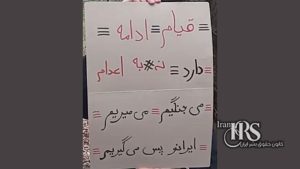 قیام ادامه
دارد نه به اعدام
می جنگیم می میریم
ایرانو پس می گیریم
Iran
HRS
کانون حقوق بشر ایران